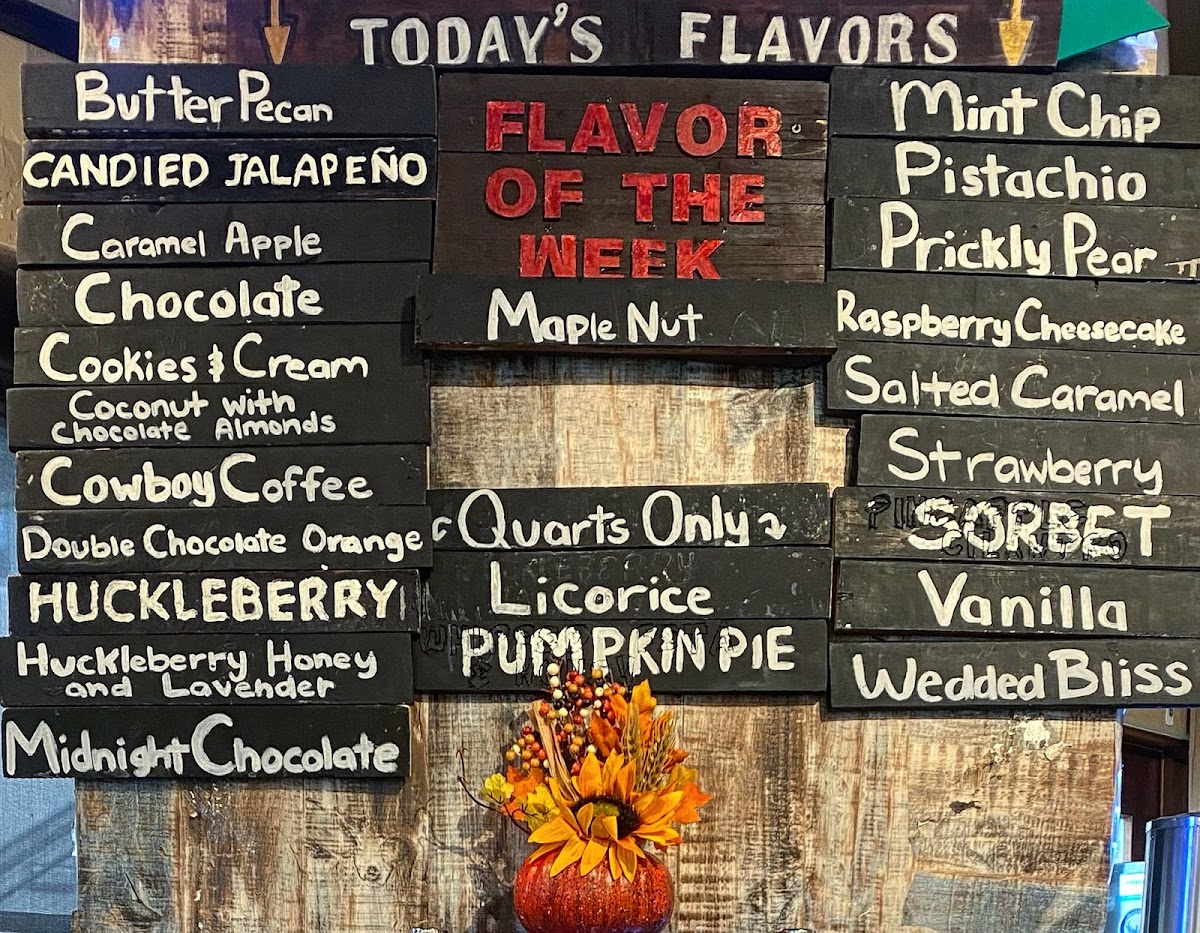 TODAY'S FLAVORS
Butter Pecan
CANDIED JALAPEÑO
Caramel Apple
Chocolate
Cookies & Cream
Coconut with
Chocolate Almonds
Cowboy Coffee
Double Chocolate Orange
HUCKLEBERRY
Huckleberry Honey
and Lavender
Midnight Chocolate
FLAVOR
OF THE
WEEK
Maple Nut
Quarts Only
Licorice
PUMPKIN PIE
Mint Chip
Pistachio
Prickly Pear
Raspberry Cheesecake
Salted Caramel
Strawberry
SORBET
Vanilla
Wedded Bliss